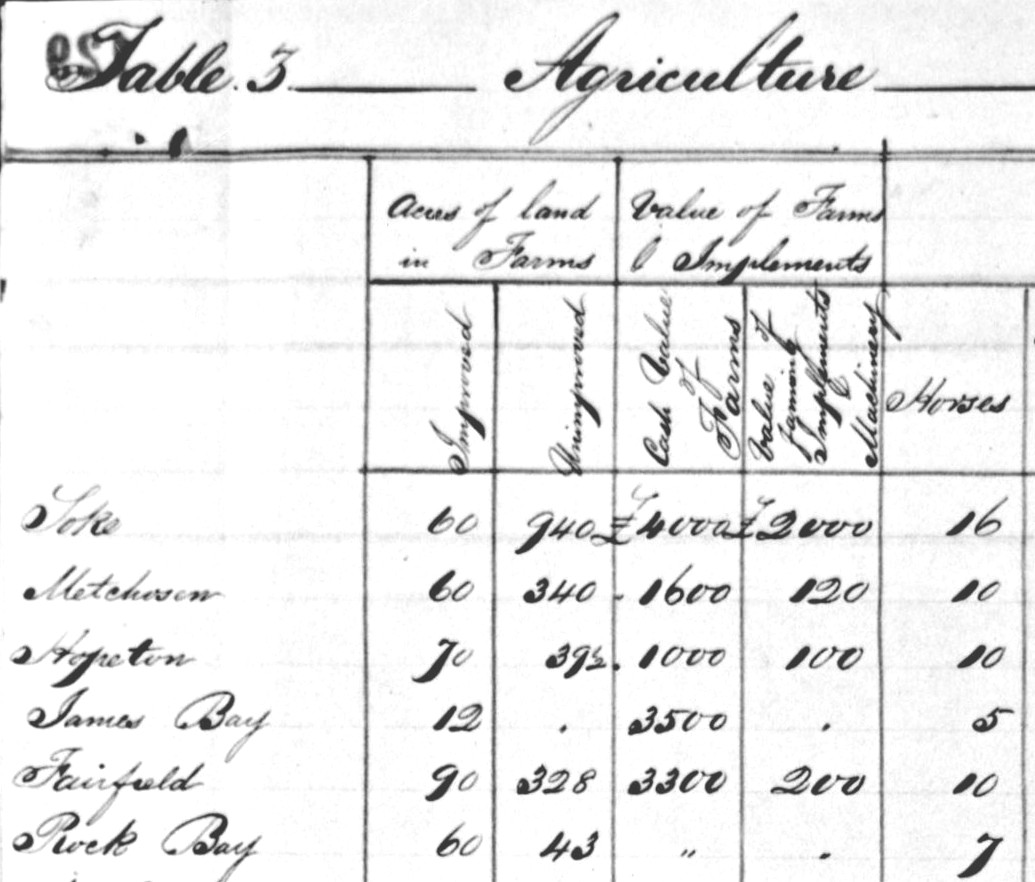 Table 3 Agriculture
Acres of land in Farms Value of Farms & Implements
Improved Unimproved Cash Value of Farms Value of Farming Implements Machinery Horses
Soke 60 940 £4000 £2000 16
Metchosen 60 340 . 1600 120 10
Hopeton 70 392. 1000 100 10
James Bay 12 . 3500 . 5
Fairfield 90 328 3300 200 10
Rock Bay 60 43 " . 7